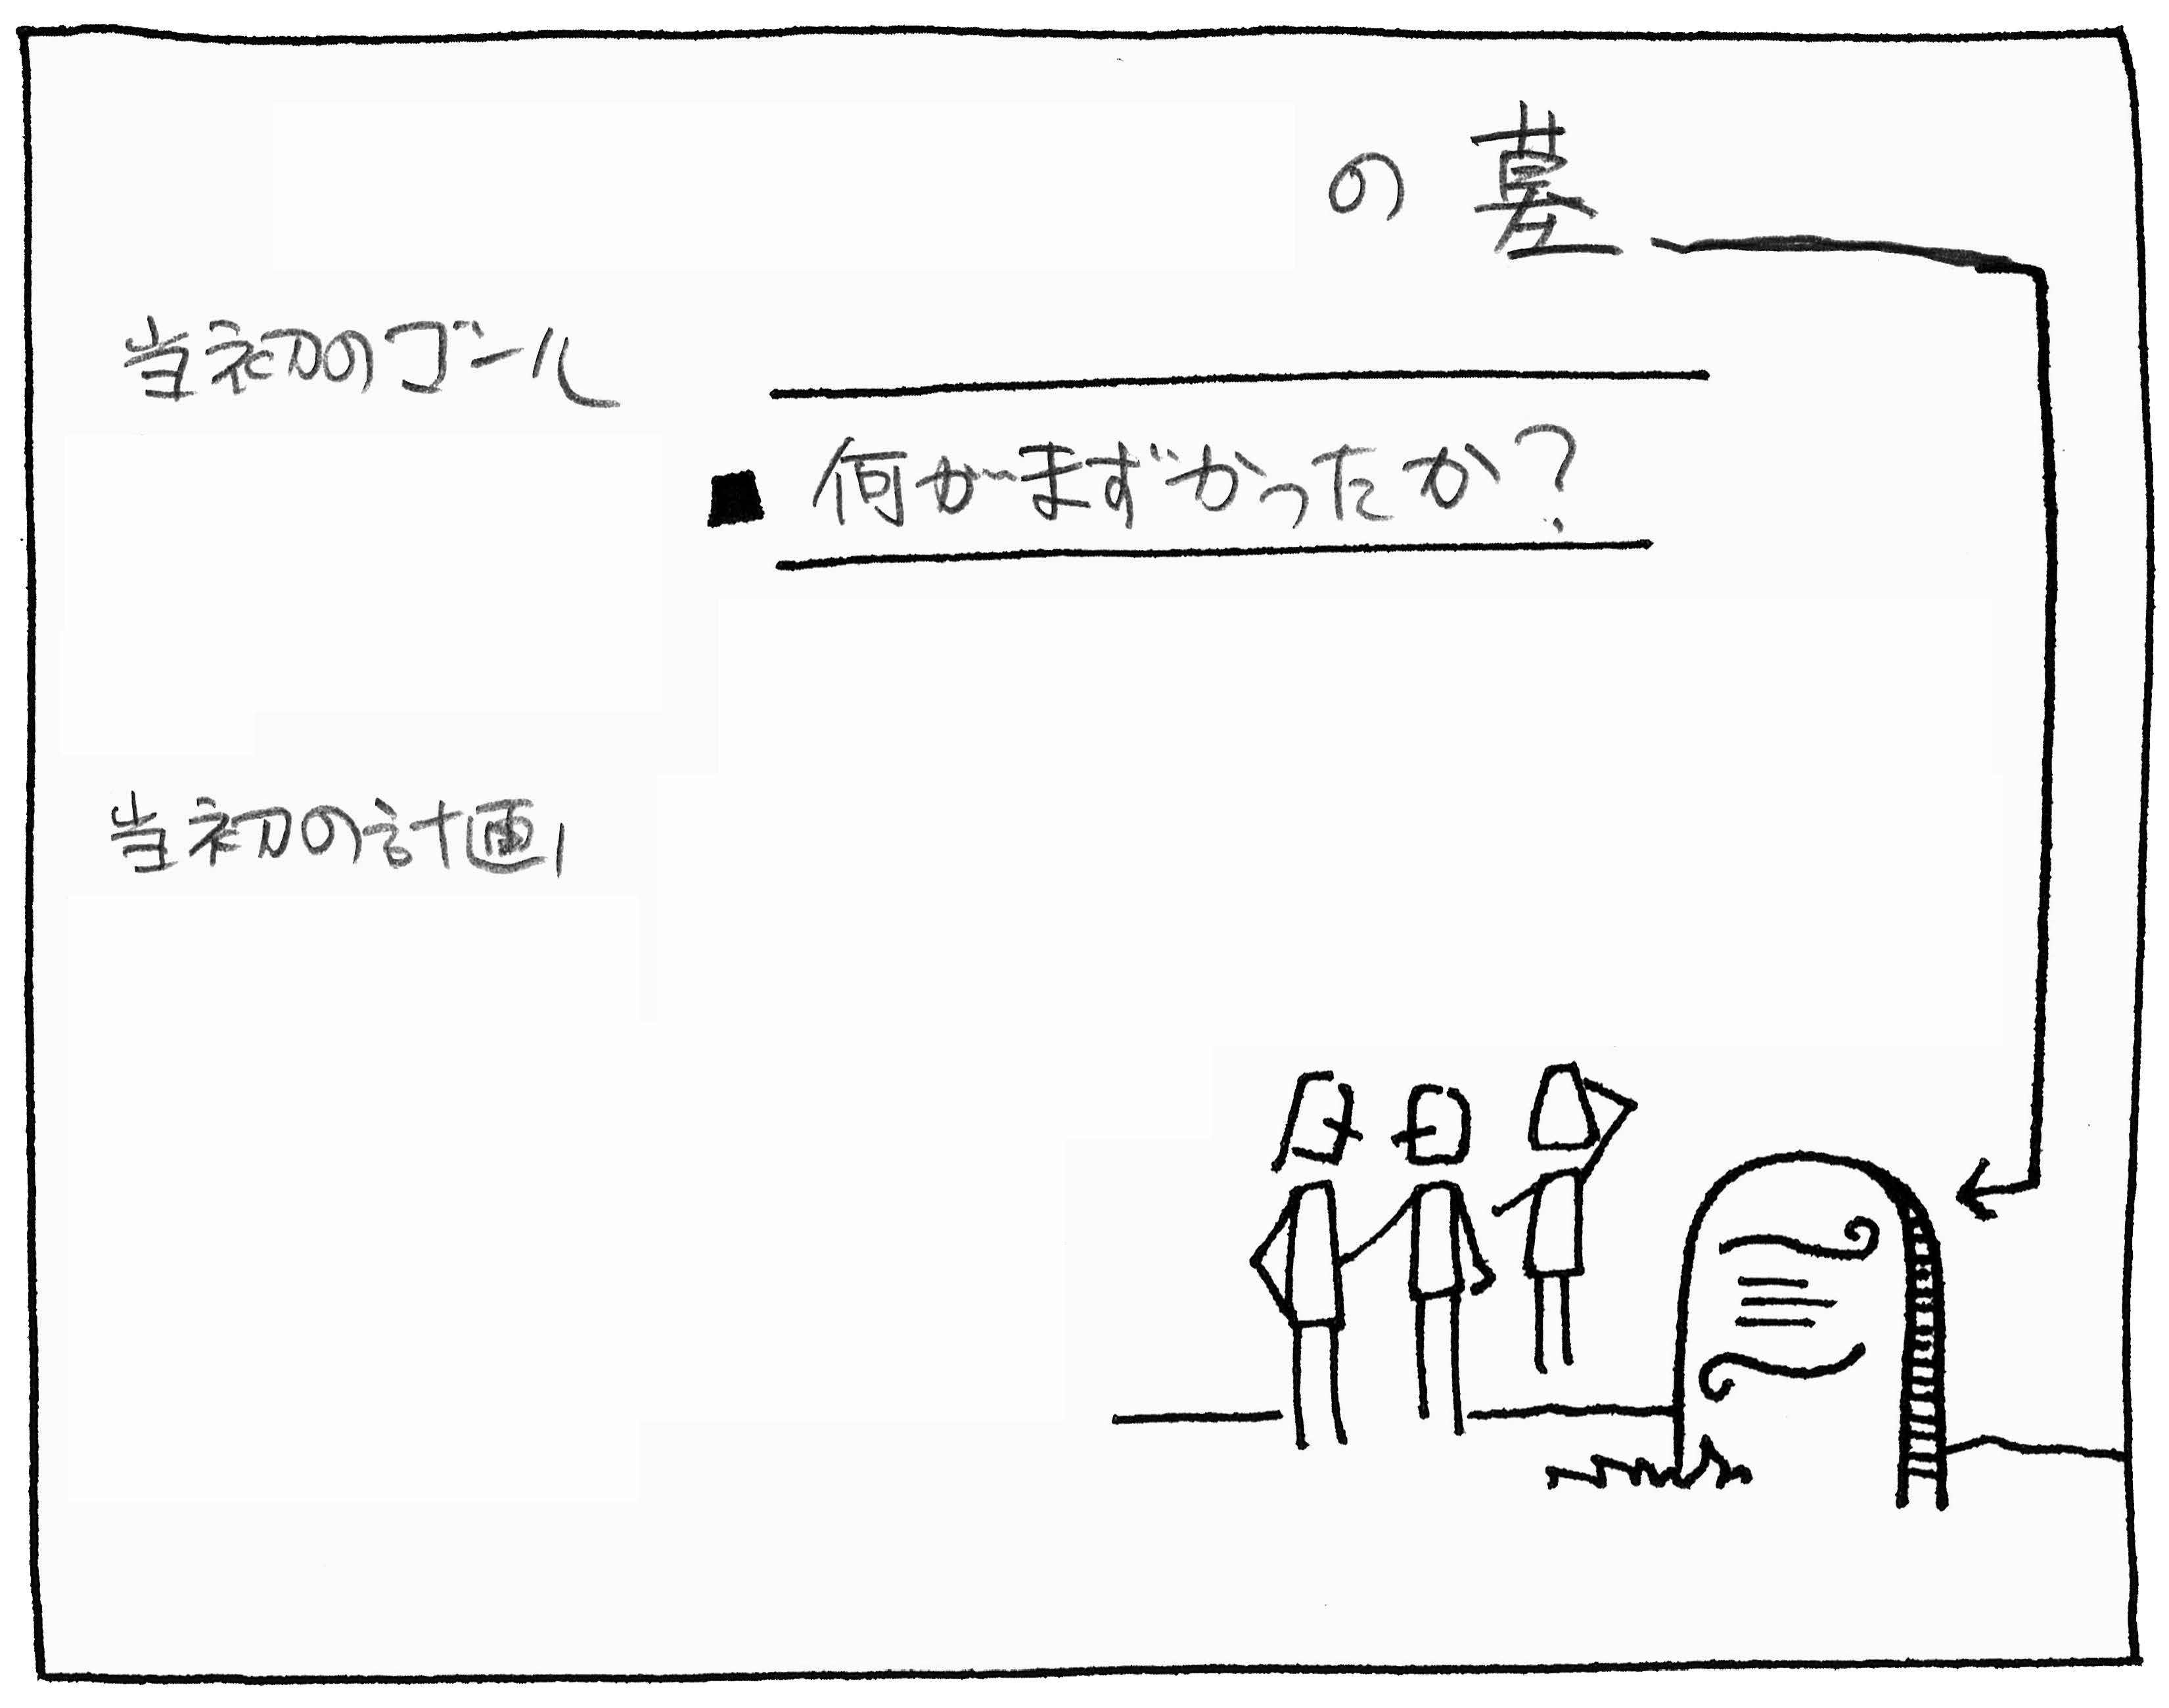 の墓
当初のゴール
何がまずかったか?
当初の計画